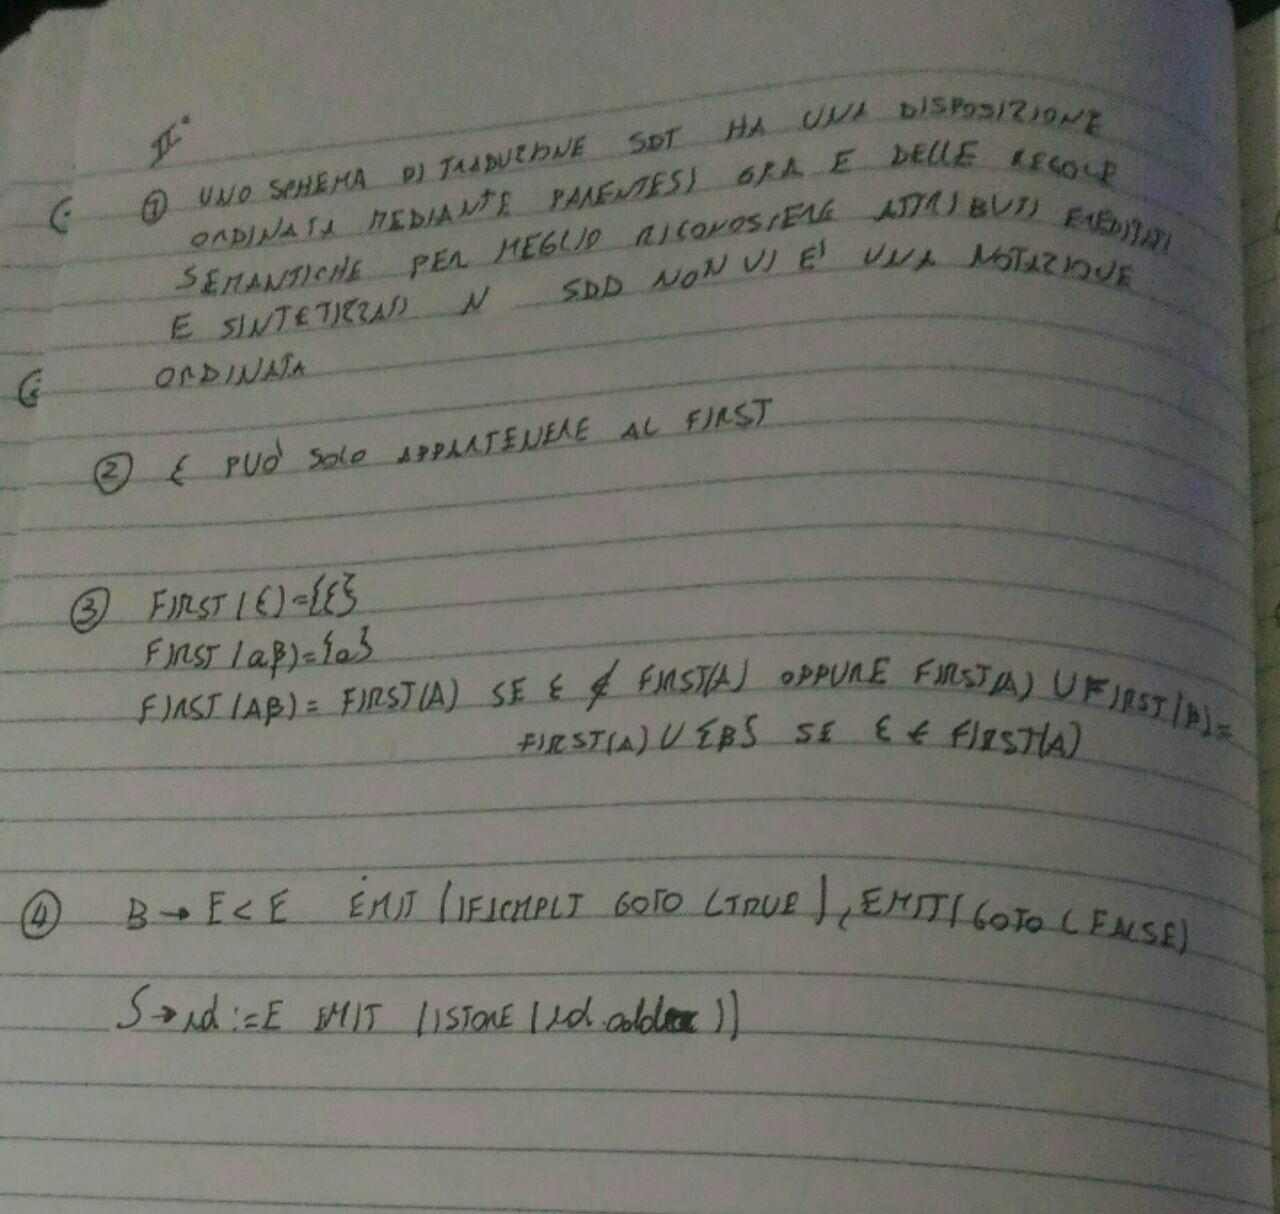 II°
① UNO SCHEMA DI TRADUZIONE SDT HA UNA DISPOSIZIONE
ORDINATA MEDIANTE PARENTESI GRA E DELLE REGOLE
SEMANTICHE PER MEGLIO RICONOSIERE ATTRIBUTI EREDITATI
E SINTETIZZATI N SDD NON VI E' UNA NOTAZIONE
ORDINATA
② ε PUO' SOLO APPARTENERE AL FIRST
③ FIRST(ε)={ε}
FIRST(aβ)={a}
FIRST(Aβ)= FIRST(A) SE ε ∉ FIRST(A) OPPURE FIRST(A) U FIRST(β)=
FIRST(A) U {β} SE ε ∈ FIRST(A)
④ B → E < E EMIT (IFICMPLT GOTO LTRUE), EMIT(GOTO LFALSE)
S → id := E EMIT (ISTORE (id.addr))